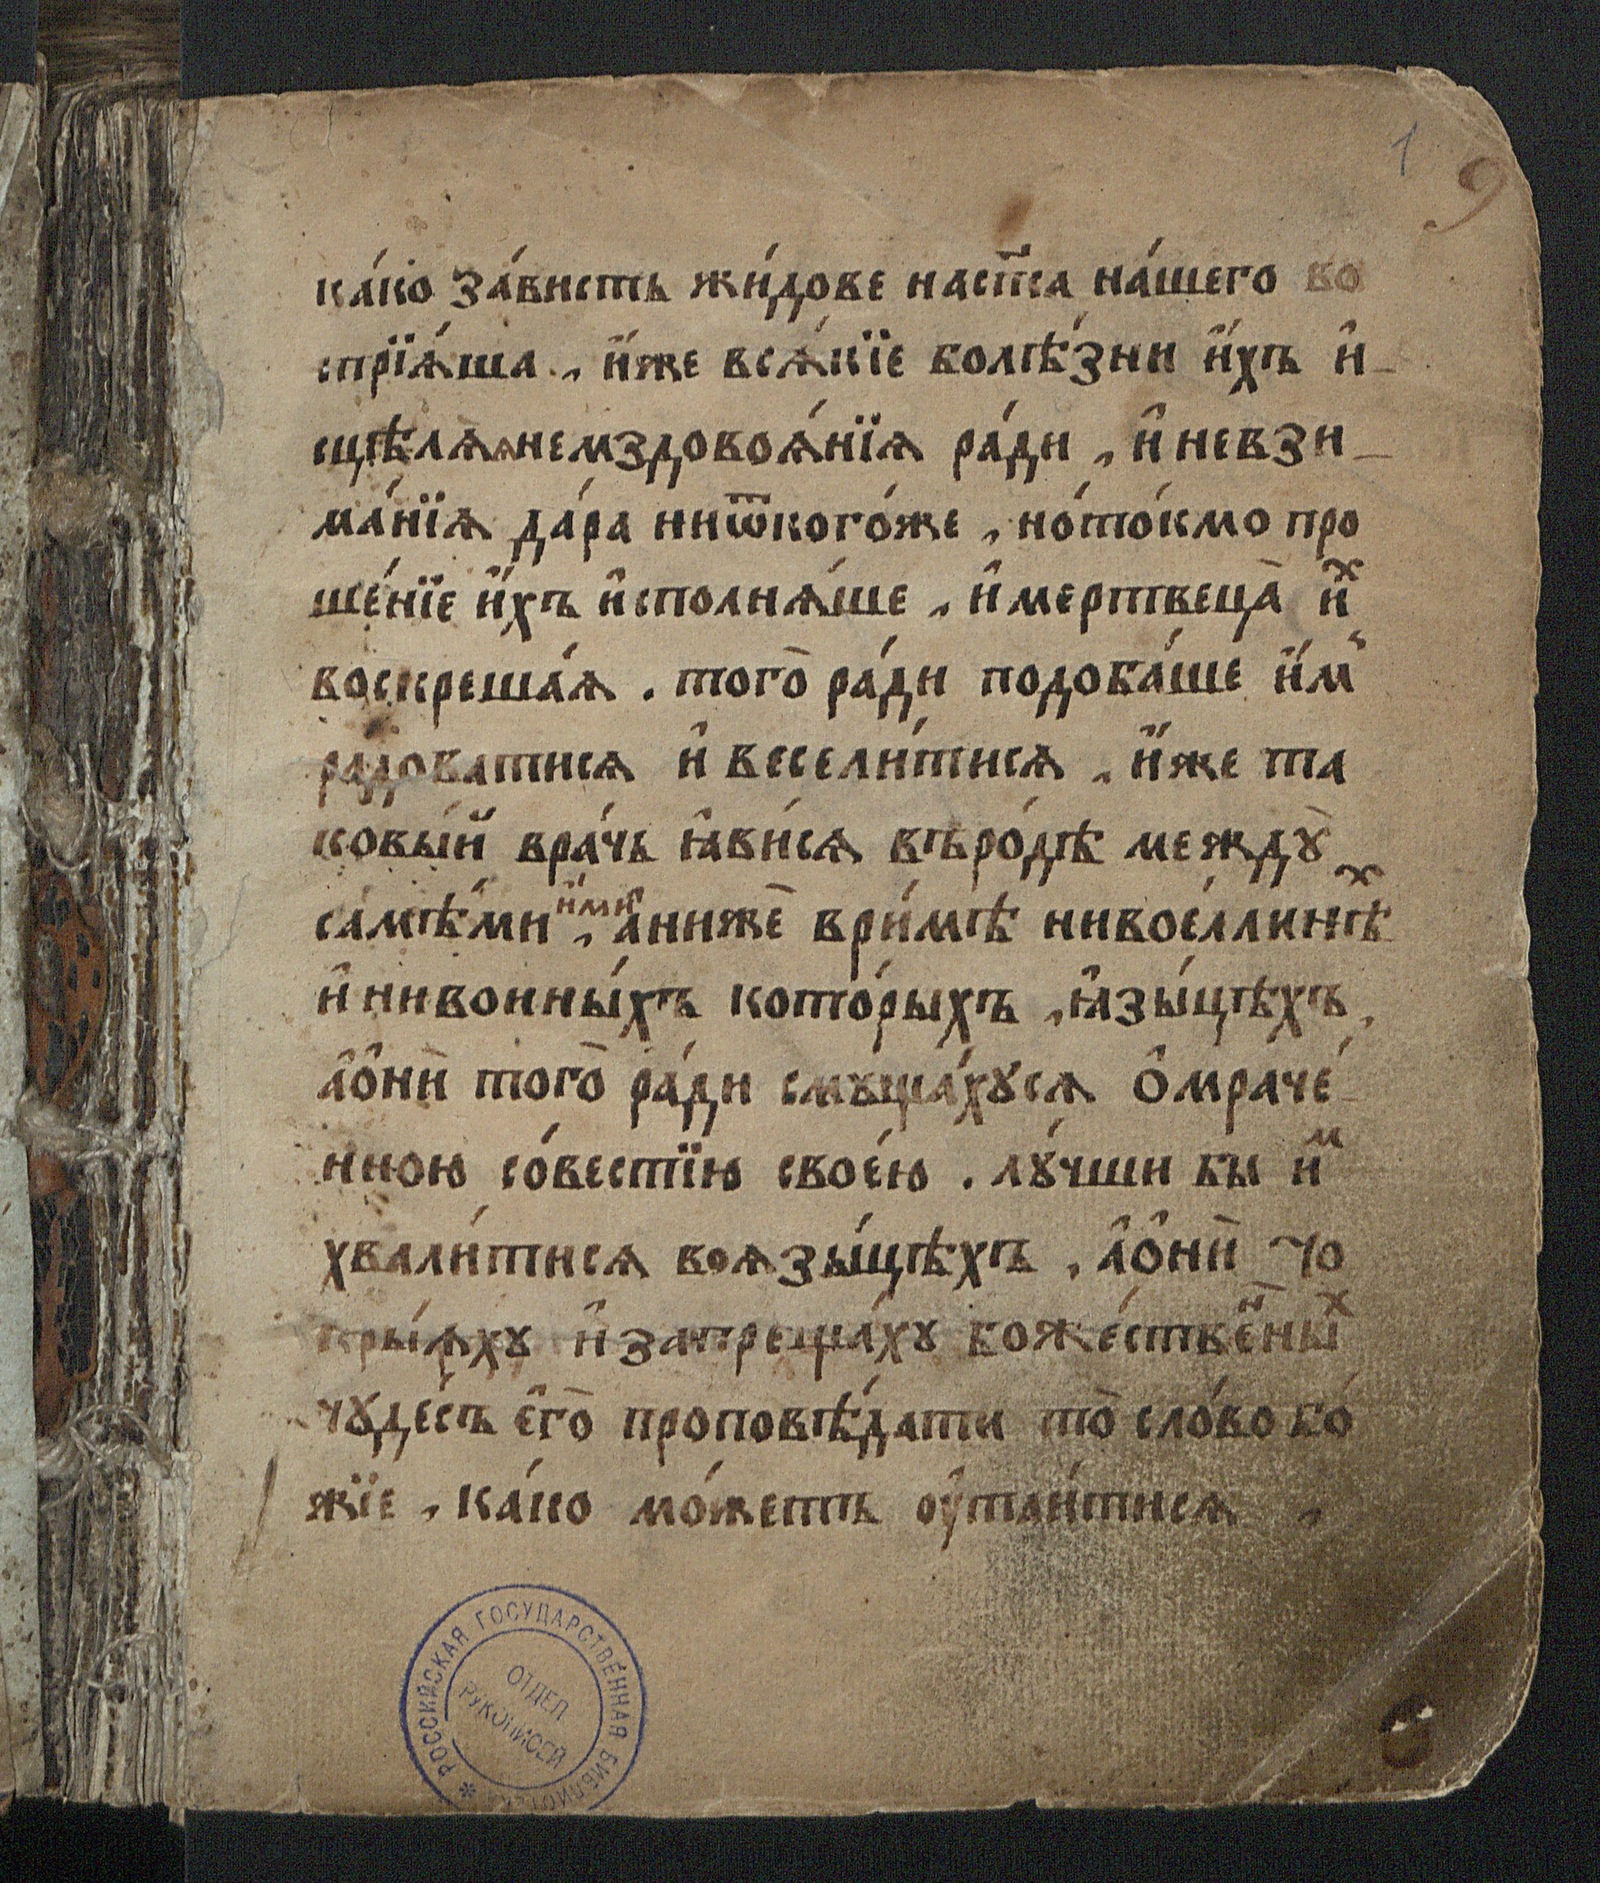 1 9
ка́ко за́висть жи́дове насп҃са на́шего во
спрїѧ́ша , и҆́же всѧ́кїе болѣ́зни и҆́хъ и҆
сцѣлѧѧ немздовоѧ́нїѧ ра́ди , и҆ невзи
ма́нїѧ да́ра ниѿкого́же , но́то́кмо про
ше́нїе и҆́хъ и҆сполнѧ́ше , и҆ мертвеца̀ и҆ⷯ
воскреша́ѧ . того̀ ра́ди подоба́ше и҆́мъ
радоватисѧ и҆ весели́тисѧ , и҆́же та
ковы́й вра́чь ꙗ҆ви́сѧ въро́дѣ междꙋ̀
самѣ́ми и҆́ми , а҆нижѐ ври́мѣ нивое́ллинѣⷯ
и҆ нивоины́хъ кото́рыхъ , ꙗ҆зы́цѣхъ ,
а҆ѻ҆нѝ того̀ ра́ди смꙋща́хꙋсѧ ѻ҆мраче́
нною со́вестїю свое́ю . лꙋ́чши бы иⷨ
хвали́тисѧ воѧзы́цѣхъ , а҆ѻ҆нѝ то
кры́ѧхꙋ и҆ запреща́хꙋ боже́ствеⷩ҇ныⷯ
чꙋде́съ є҆го̀ проповѣ́дати то̀ сло́во бо́
жїе , ка́ко мо́жетъ ᲂу҆таи́тисѧ ,
РОССИЙСКАЯ ГОСУДАРСТВЕННАЯ БИБЛИОТЕКА *
ОТДЕЛ
РУКОПИСЕЙ